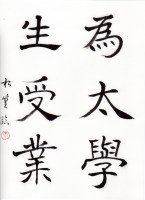 為太學
生受業